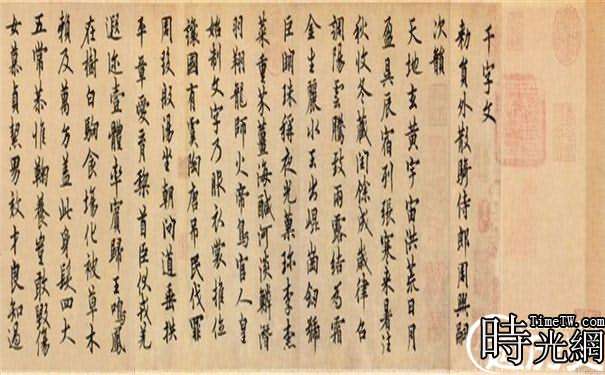 千字文
勑員外散騎侍郎周興嗣
次韻
天地玄黃宇宙洪荒日月
盈昃辰宿列張寒來暑往
秋收冬藏閏餘成歲律召
調陽雲騰致雨露結為霜
金生麗水玉出崐崗劒號
巨闕珠稱夜光菓珍李柰
菜重芥薑海鹹河淡鱗潛
羽翔龍師火帝鳥官人皇
始制文字乃服衣裳推位
讓國有虞陶唐弔民伐罪
周發殷湯坐朝問道垂拱
平章愛育黎首臣伏戎羌
遐迩壹體率賓歸王鳴鳳
在樹白駒食塲化被草木
賴及萬方蓋此身髮四大
五常恭惟鞠養豈敢毀傷
女慕貞絜男效才良知過
TimeTW.com
時光網